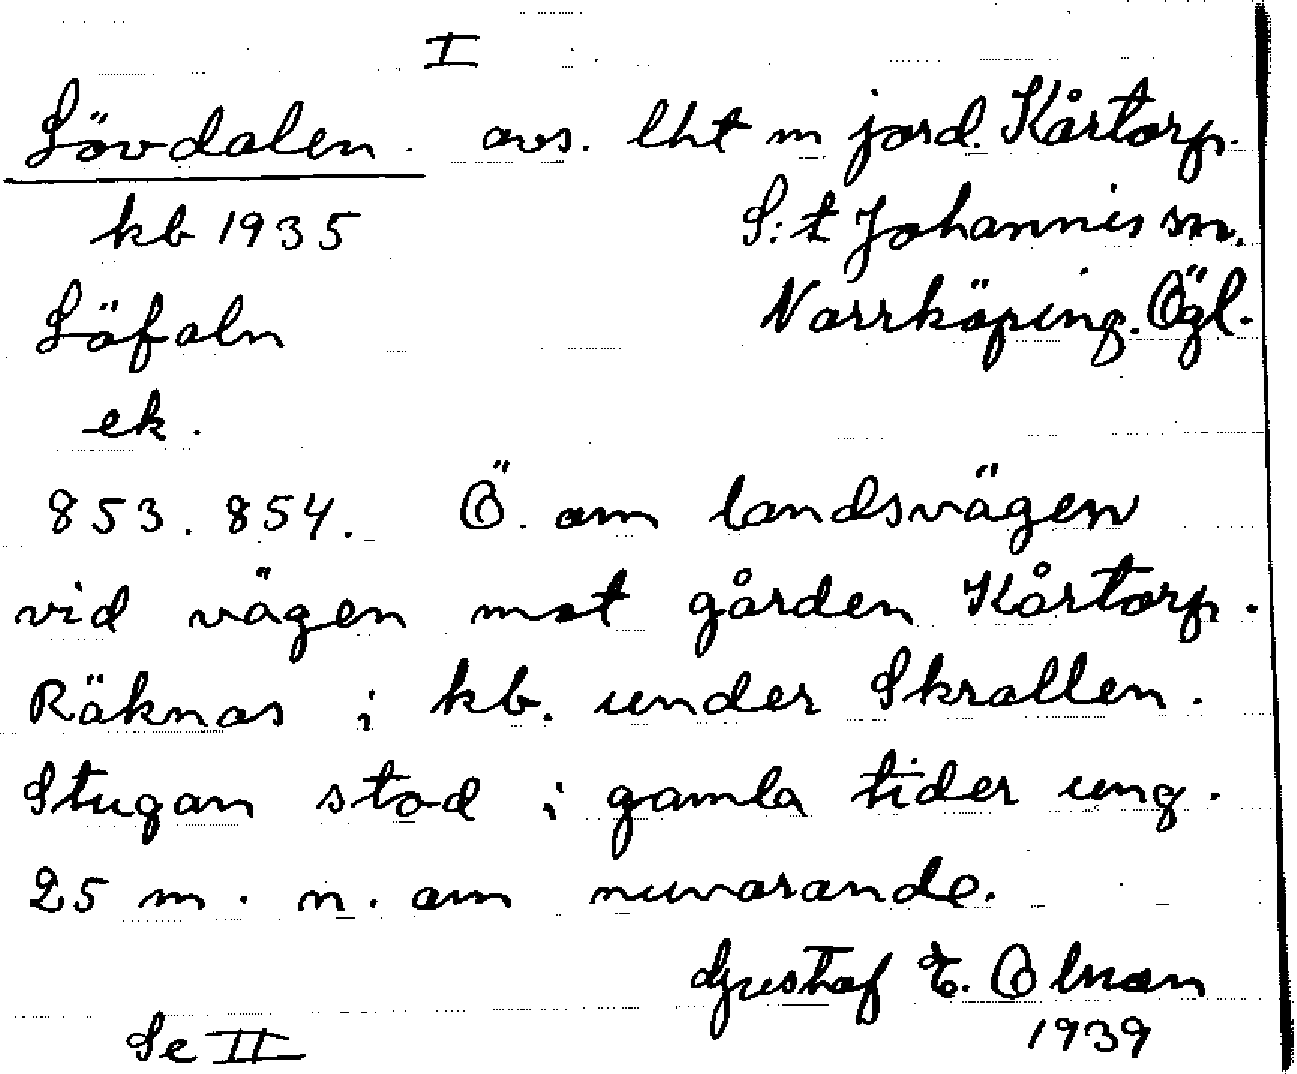 I
Lövdalen. avs. lht m jord. Kårtorp.
kb 1935 S:t Johannis sn.
Löfaln Norrköping. Ögl.
ek.
853. 854. Ö. om landsvägen
vid vägen mot gården Kårtorp.
Räknas i kb. under Skrallen.
Stugan stod i gamla tider ung.
25 m. n. om nuvarande.
Gustaf E. Olsson
Se II 1939